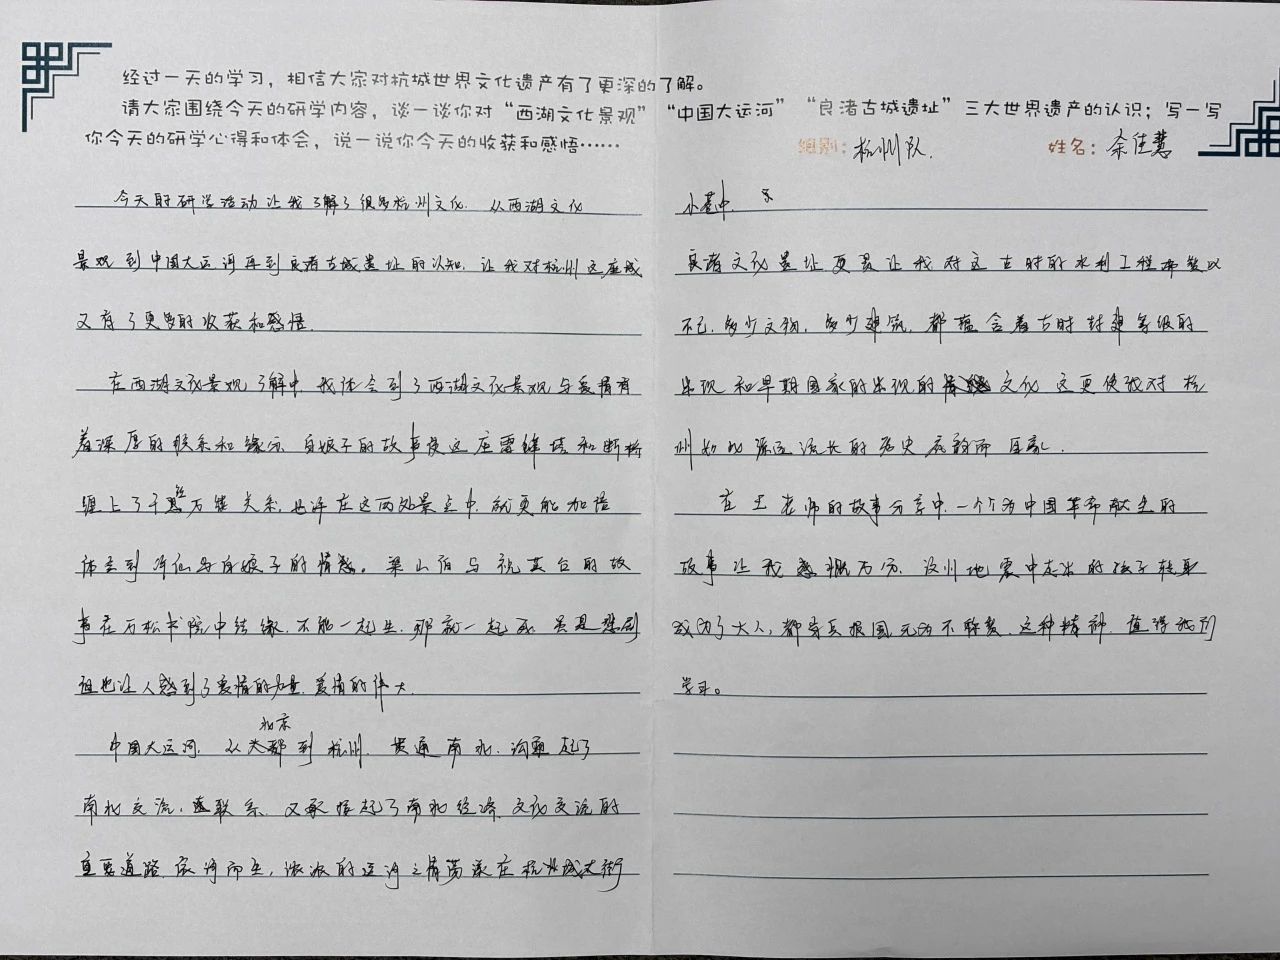 经过一天的学习，相信大家对杭城世界文化遗产有了更深的了解。
请大家围绕今天的研学内容，谈一谈你对“西湖文化景观”“中国大运河”“良渚古城遗址”三大世界遗产的认识；写一写
你今天的研学心得和体会，说一说你今天的收获和感悟……
组别：杭州队.
姓名：余佳慧
今天的研学活动让我了解了很多杭州文化. 从西湖文化
景观到中国大运河再到良渚古城遗址的认知. 让我对杭州这座城
又有了更多的收获和感悟.
在西湖文化景观了解中. 我体会到了西湖文化景观与爱情有
着深厚的联系和缘分. 白娘子的故事使这座雷锋塔和断桥
缠上了千丝万缕关系, 也许在这两处景点中. 就更能加倍
体会到许仙与白娘子的情感。梁山伯与祝英台的故
事在万松书院中结缘. 不能一起生. 那就一起死. 虽是悲剧
但也让人感到了爱情的力量. 爱情的伟大.
中国大运河. 从北京到杭州. 贯通南北. 沟通起了
南北交流, 联系. 又承接起了南北经济. 文化交流的
重要道路. 依河而生, 浓浓的运河之情荡漾在杭州城大街
小巷中.
良渚文化遗址更是让我对这古时的水利工程
不已. 多少文物. 多少建筑. 都蕴含着古时封建等级的
出现和早期国家的出现的文化. 这更使我对杭
州如此源远流长的历史底韵而自豪.
在王老师的故事分享中. 一个个为中国革命献生的
故事让我感慨万分. 汶川地震中走出的孩子转眼
成为了大人, 都当兵报国 这种精神. 值得我们
学习。